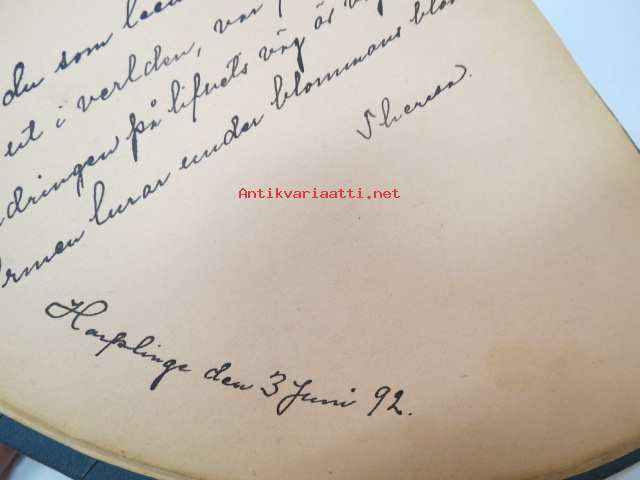 du som leen
ut i verlden, var
ndringen på lifvets väg är
ormen lurar under blommans
Theresa.
Antikvariaatti.net
Harplinge den 3 Juni 92.